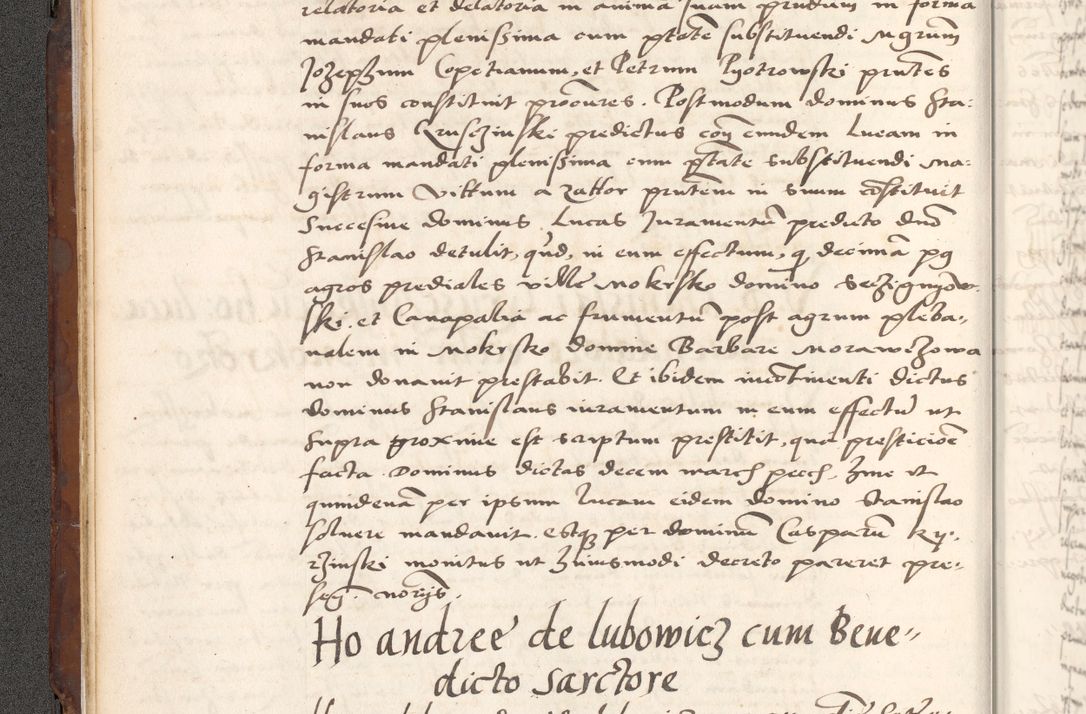 relatoria et delatoria in anima suam prudum in forma
mandati plenissima cum ptate substituendi Mgrum
Jozephum Copetianum, et Petrum Pyotrowski prntes
in suos constituit procures. Postmodum dominus Sta-
nislaus Krusczinski predictus contra eundem Lucam in
forma mandati plenissima cum ptate substituendi Ma-
gistrum Vittum a Zattor prntem in suum constituit
Successive dominus Lucas Juramentu predicto dno
Stanislao detulit, quod, in eum effectum, q decima pg
agros prediales ville Mokrsko domino
ski et Canapalia ac frumentu post agrum pleba-
nalem in Mokrsko domine Barbare Morawczowa
non donavit prestabit. Et ibidem incotinenti dictus
dominus Stanislaus iuramentum in eum effectu ut
supra proxime est scriptum prestitit, qua presticioe
facta Dominus dictas decem march pecch. hinc ut
quindenam per ipsum Lucam eidem domino Stanislao
solvere mandavit. estq per dominum Casparum Ky-
rzinski monitus ut huiusmodi decreto pareret pre-

Ho andree de lubowicz cum Bene-
dicto Sarctore